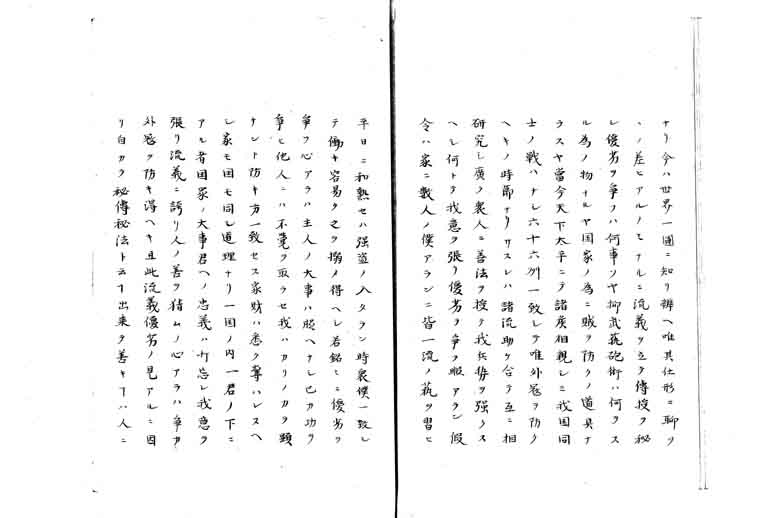 ナリ今ハ世界一圓ニ知リ辨ヘ唯其仕形ニ聊ツ
ヽノ差ヒアルノミナルニ流義ヲ立テ傳授ヲ秘
シ優劣ヲ爭フハ何事ソヤ抑武藝砲術ハ何ヲス
ル為ノ物ナルヤ国家ノ為ニ賊ヲ防クノ道具ナ
ラスヤ當今天下太平ニテ諸侯相親シミ我国同
士ノ戦ハナシ六十六州一致シテ唯外冦ヲ防ク
ヘキノ時節ナリサスレハ諸流助ケ合テ互ニ相
研究シ廣ク衆人ニ善法ヲ授ケ我兵勢ヲ強クス
ヘシ何トテ我意ヲ張リ優劣ヲ爭フ暇アラン假
令ハ家ニ數人ノ僕アランニ皆一流ノ藝ヲ習ヒ
平日ニ和熟セハ強盗ノ入タラン時衆僕一致シ
テ働キ容易ク之ヲ搦メ得ヘシ若銘ミニ優劣ヲ
爭フ心アラハ主人ノ大事ハ脇ヘナシ己カ功ヲ
爭ヒ他人ニハ不覺ヲ取ラセ我ハカリノカヲ顕
サント防キ方一致セス家財ハ悉ク奪ハレスヘ
シ家モ国モ同シ道理ナリ一国ノ内一君ノ下ニ
アル者国家ノ大事君ヘノ忠義ハ打忘レ我意ヲ
張リ流義ニ誇リ人ノ善ヲ猜ムノ心アラハ爭カ
外冦ヲ防キ得ヘキ且此流義優劣ノ見アルニ因
リ自カラ秘傳秘法ト云フ出来テ善キフハ人ニ